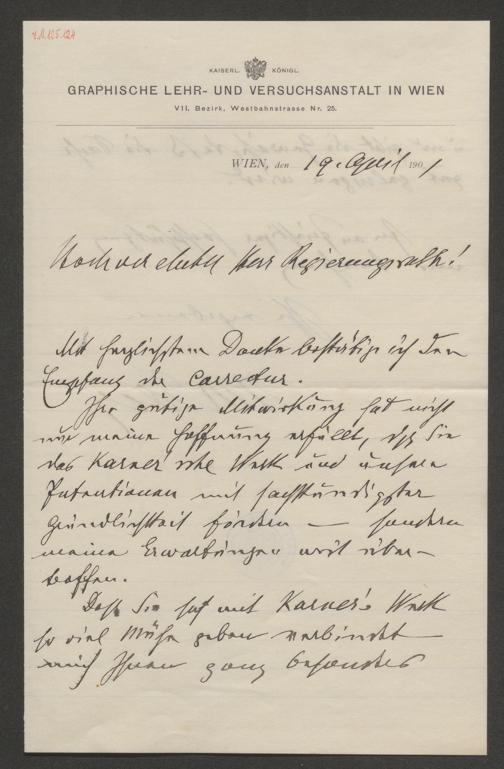 KAISERL. KÖNIGL.
GRAPHISCHE LEHR- UND VERSUCHSANSTALT IN WIEN
VII. Bezirk, Westbahnstrasse Nr. 25.
WIEN, den 19. April 1901
Hochverehrter Herr Regierungsrath!
Mit herzlichstem Danke bestätige ich den
Empfang der Correctur.
Ihre gütige Mitwirkung hat nicht
nur meine Hoffnung erfüllt, daß Sie
das Karner'sche Werk und unsere
Intentionen mit sachkundigster
Gründlichkeit fördern — sondern
meine Erwartungen weit über-
troffen.
Daß Sie sich mit Karner's Werk
so viel Mühe geben verbindet
mich Ihnen ganz besonders